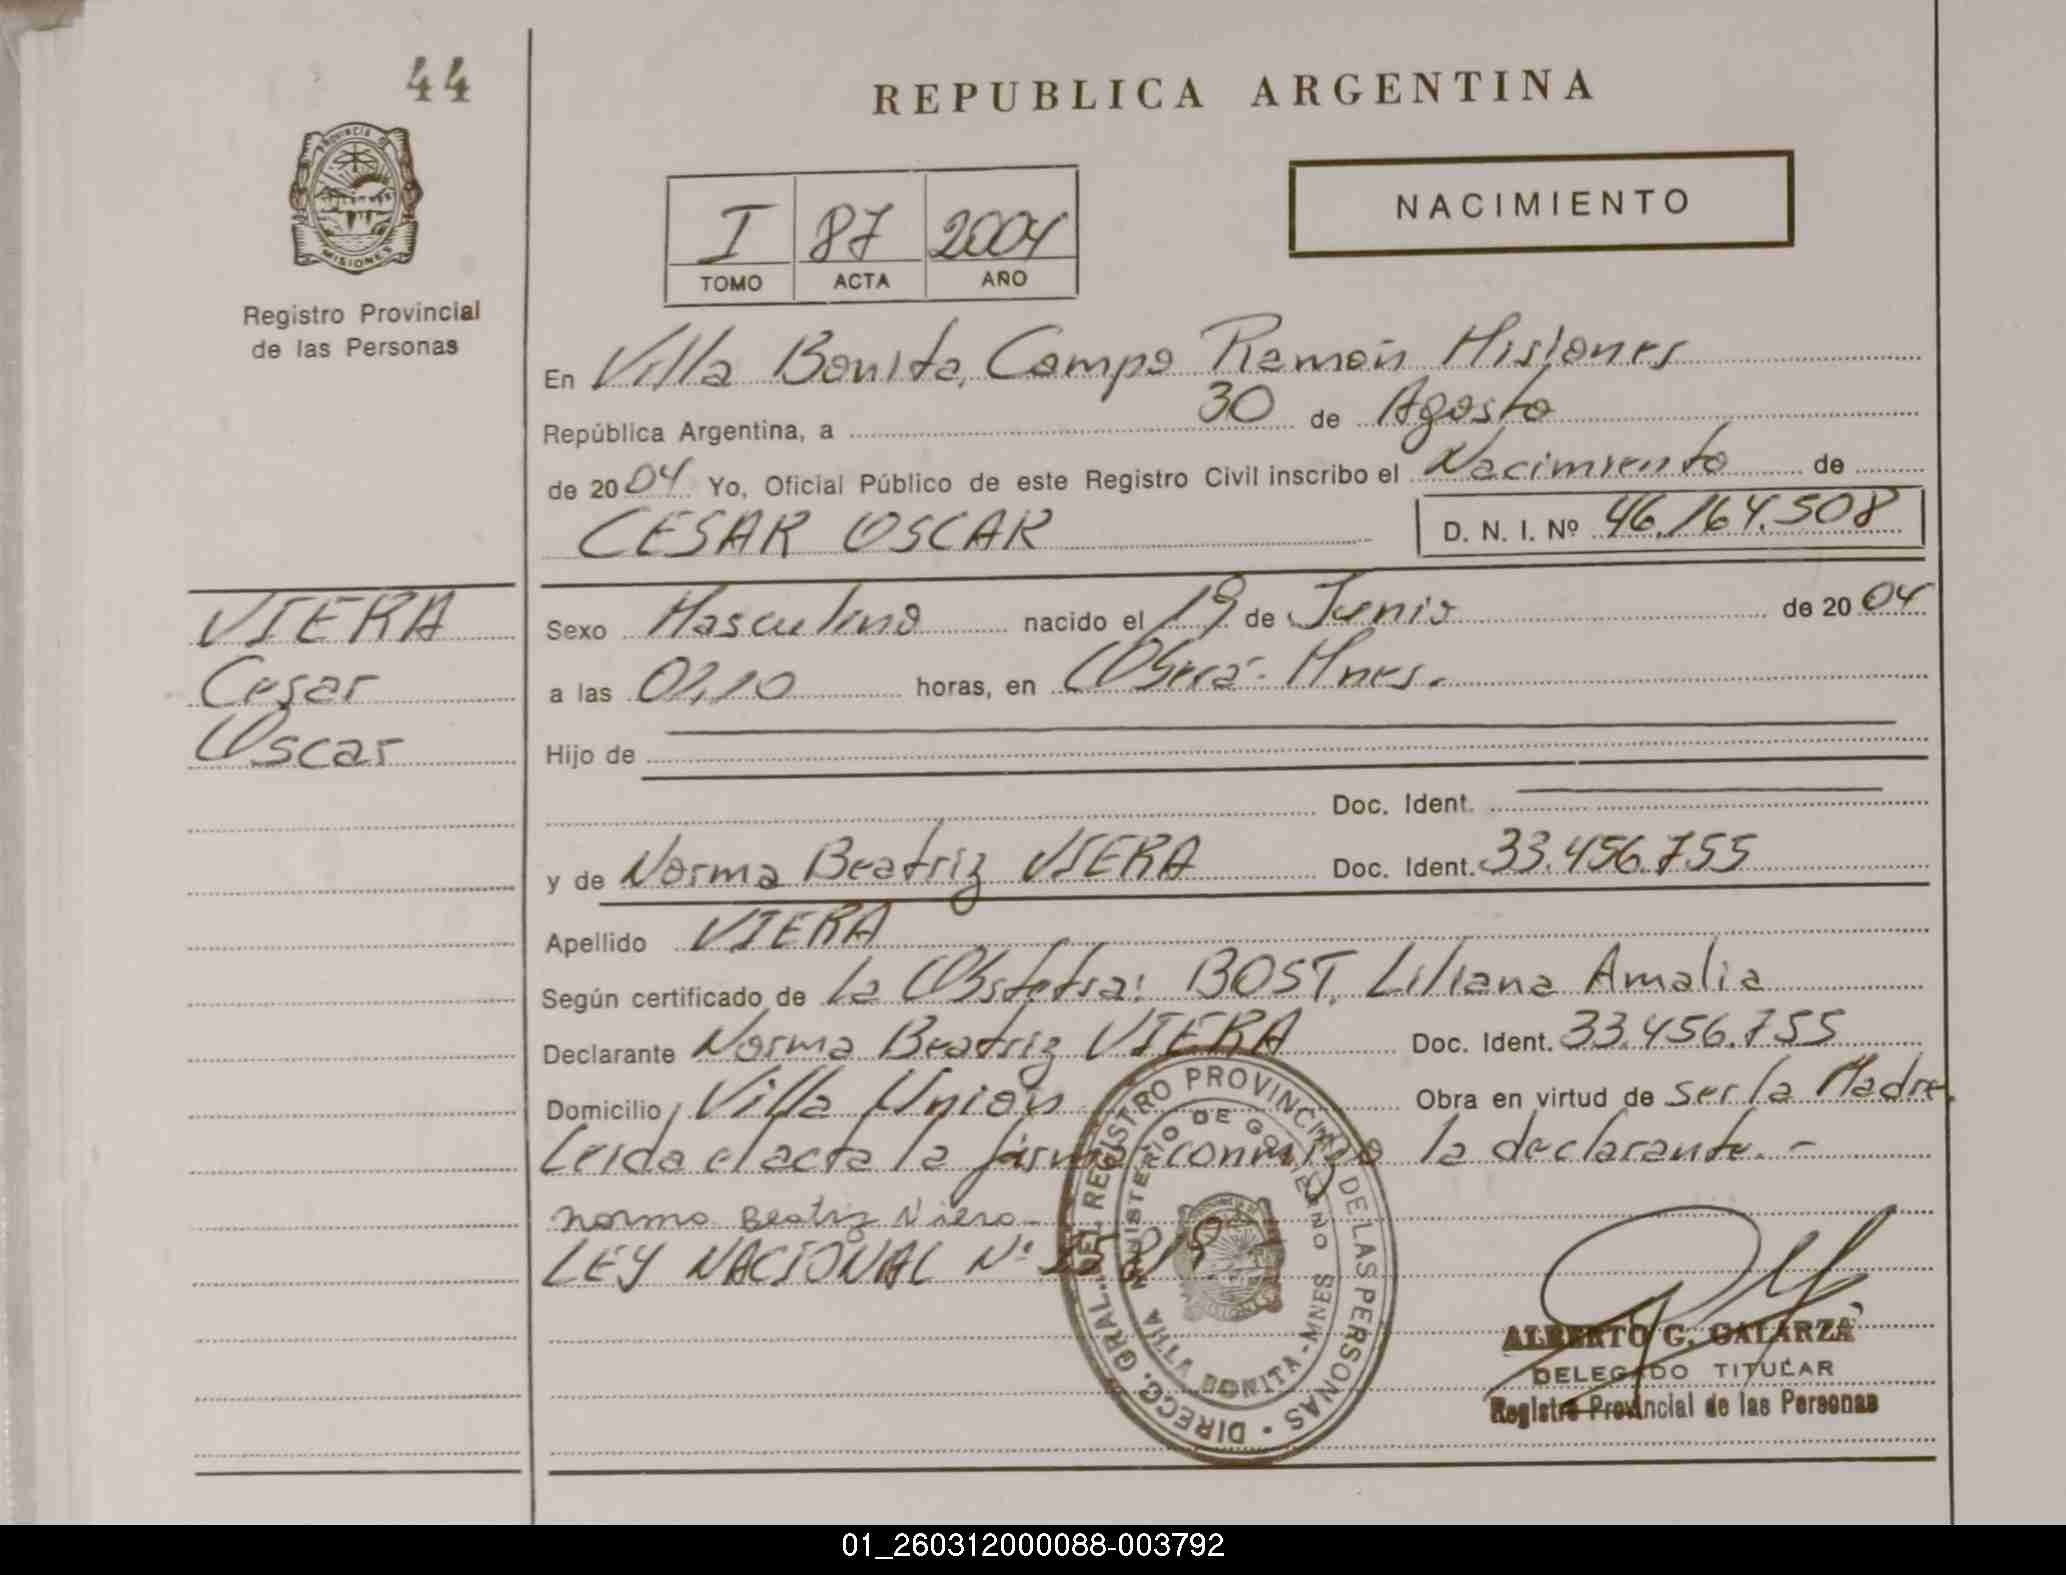 44
REPUBLICA ARGENTINA
PROVINCIA DE
MISIONES
Registro Provincial
de las Personas
I 87 2004
TOMO ACTA AÑO
NACIMIENTO
En Villa Bonita, Campo Ramón Misiones
República Argentina, a 30 de Agosto
de 2004 Yo, Oficial Público de este Registro Civil inscribo el Nacimiento de
CESAR OSCAR D. N. I. Nº 46.164.508
VIERA
Cesar
Oscar
Sexo Masculino nacido el 19 de Junio de 2004
a las 02,10 horas, en Oberá- Mnes.
Hijo de
Doc. Ident.
y de Norma Beatriz VIERA Doc. Ident. 33.456.755
Apellido VIERA
Según certificado de la Obstetra: BOST, Liliana Amalia
Declarante Norma Beatriz VIERA Doc. Ident. 33.456.755
Domicilio Villa Unión Obra en virtud de ser la Madre.
Leida el acta la firma conmigo la declarante.-
Norma Beatriz Viera
LEY NACIONAL Nº
DIRECC. GRAL. DEL REGISTRO PROVINCIAL DE LAS PERSONAS
MINISTERIO DE GOBIERNO
VILLA BONITA-MNES
ALBERTO G. GALARZA
DELEGADO TITULAR
Registro Provincial de las Personas
01_260312000088-003792